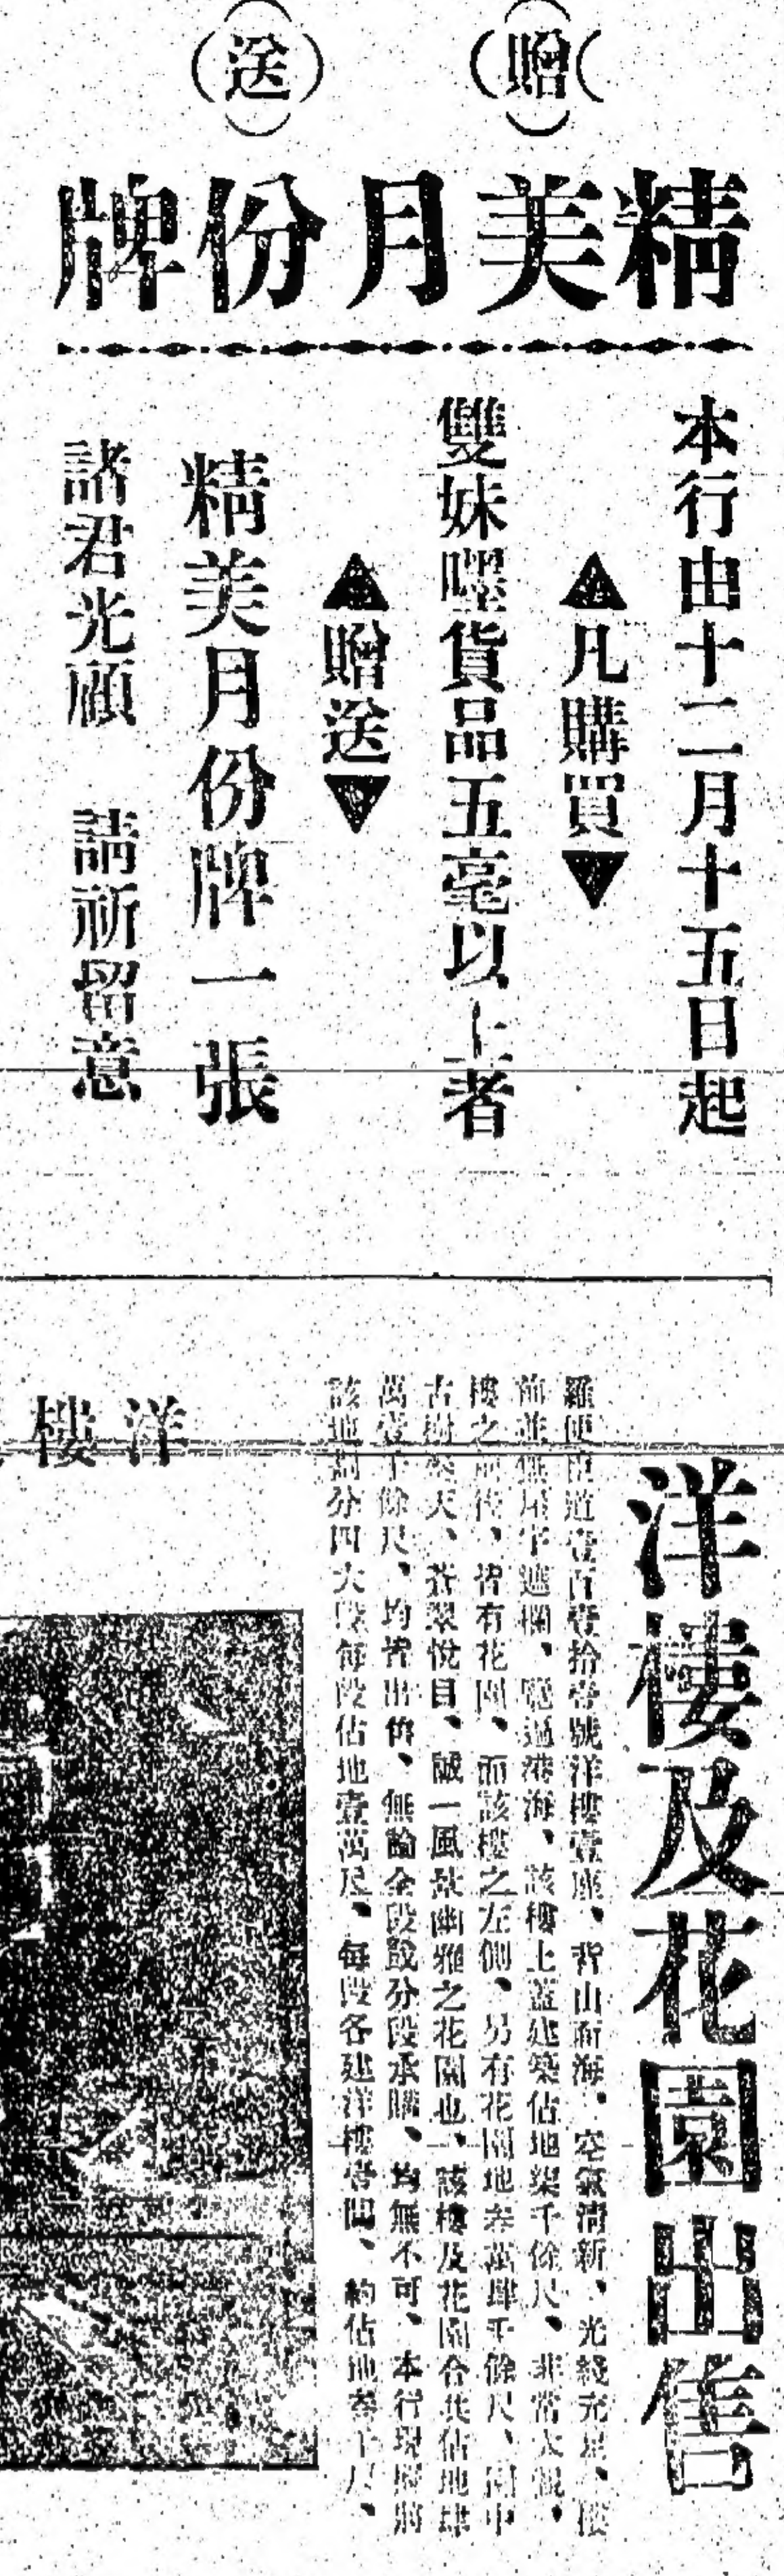 （贈）（送）
精美月份牌
本行由十二月十五日起
▲凡購買▼
雙妹嚜貨品五毫以上者
▲贈送▼
精美月份牌一張
諸君光顧　請祈留意
洋樓及花園出售
羅便臣道壹百壹拾壹號洋樓壹座、背山面海、空氣清新、光綫充足、樓
前並無屋宇遮欄、覽過港海、該樓上蓋建築佔地柒千餘尺、非常大觀、
樓之前後、皆有花園、而該樓之左側、另有花園地叁萬肆千餘尺、園中
古樹參天、蒼翠悅目、誠一風景幽雅之花園也、該樓及花園合共佔地肆
萬壹千餘尺、均皆出售、無論全段或分段承購、均無不可、本行現擬將
該地劃分四大段每段佔地壹萬尺、每段各建洋樓壹間、約佔地叁千尺、
洋樓